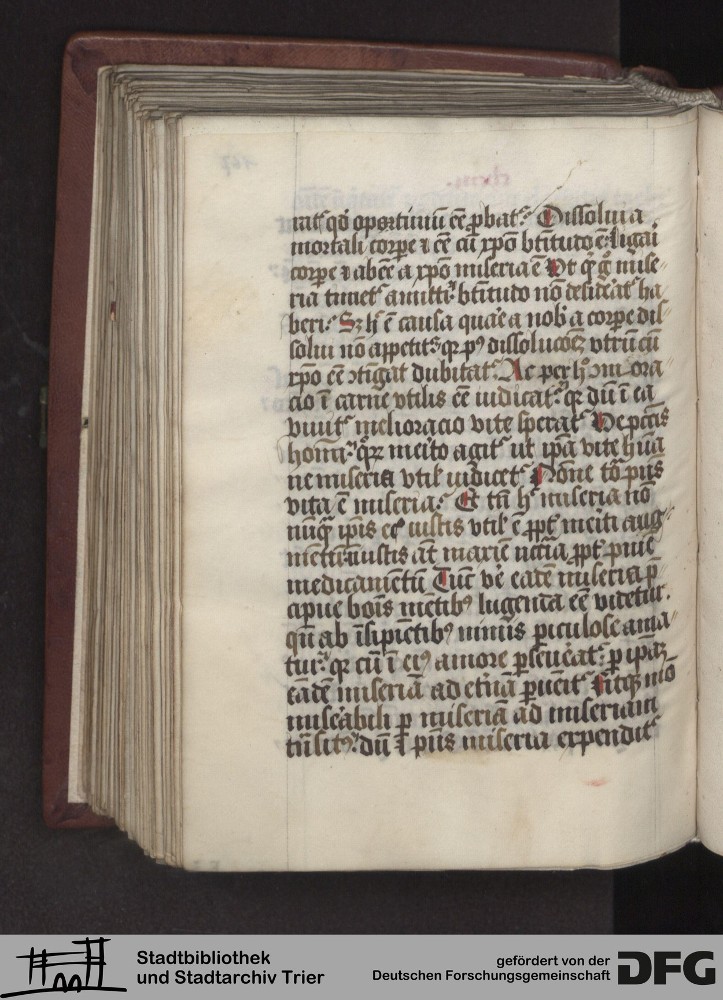 rat qd oportunū eē ꝓbat Dissolui a
mortali corpe ⁊ eē cū xpo btitudo ē ligari
corpe ⁊ abeē a xpo miseria ē Ut qd g mise-
ria timet amitti btitudo nō desiderat ha
beri Sz h ē causa quare a nob a corpe dis-
solui nō appetit qr pꝰ dissolucōez vtrū cū
xpo eē ↄtīgat dubitat Ac per h om ora
cio ī carne vtilis eē iudicat qr dū ī ea
viuit melioracio vite sperat De pctis
homī qrz merito agit ut ipa vite huā
ne miseria vtil iudicet Nōne tō pns
vita ē miseria Et tn h miseria nō
nūq ipis eē iustis vtil ē ꝓpt meriti aug-
mētū iniustis at maxie nccīa ꝓpt pnīe
medicamētū Tūc v eadē miseria p
cipue bois mētibꝰ lugenda eē videtur
qn ab īsipiētibꝰ minus piculose ama-
tur qr cū ī eiꝰ amore pseuerat p ipaz
eādē miseriā ad etnā puēit Sitqz mō
miserabili p miseriā ad miseriam
tnsitꝰ dū ī pnis miseria expendit
Stadtbibliothek
und Stadtarchiv Trier
gefördert von der
Deutschen Forschungsgemeinschaft
DFG